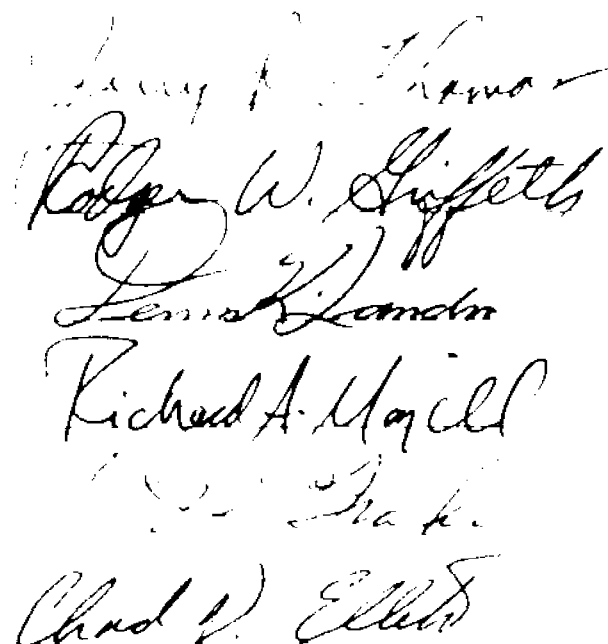 Jerry R. Thomas
Rodger W. Griffeth
Dennis K. Landin
Richard A. Magill
Chad D. Ellett